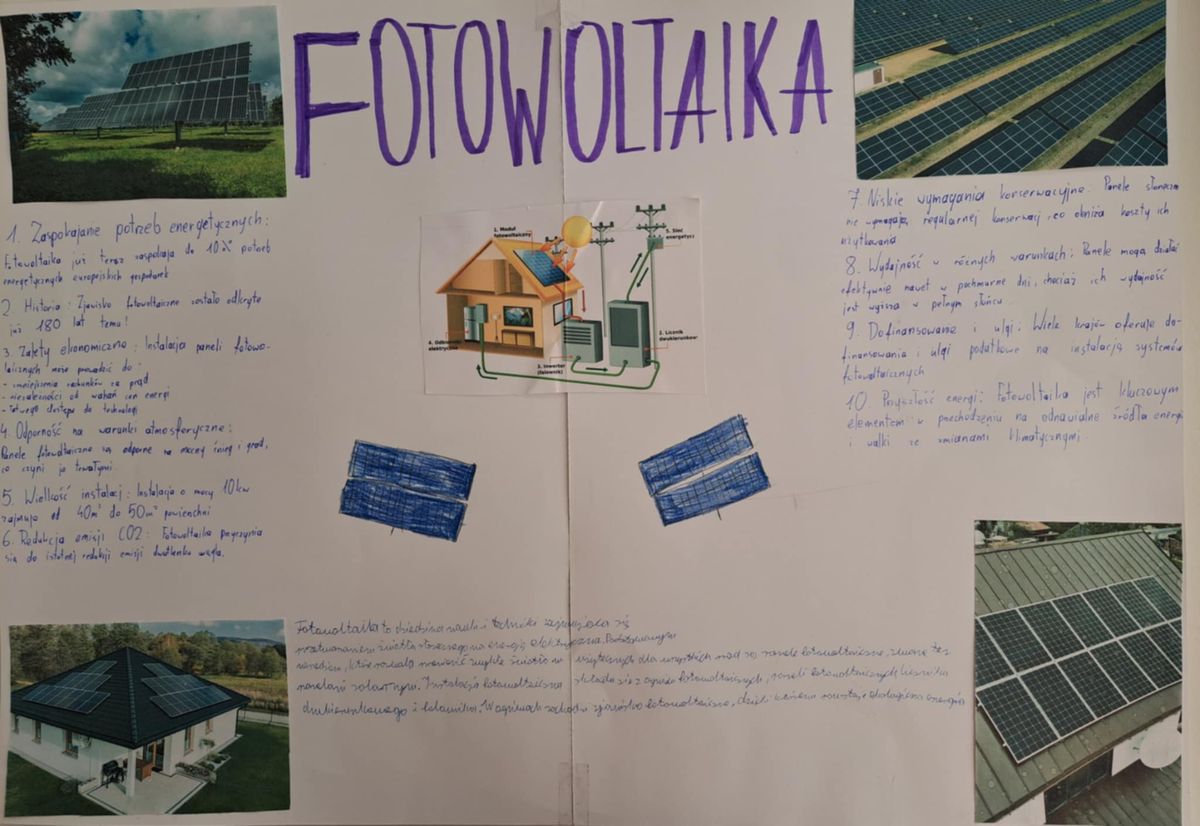 FOTOWOLTAIKA
1. Zaspokajanie potrzeb energetycznych:
Fotowoltaika już teraz zaspokaja do 10% potrzeb
energetycznych europejskich gospodarek
2. Historia: Zjawisko fotowoltaiczne zostało odkryte
już 180 lat temu!
3. Zalety ekonomiczne: Instalacja paneli fotowo-
ltaicznych może prowadzić do:
- zmniejszenia rachunków za prąd
- niezależności od wahań cen energi
- łatwego dostępu do technologi
4. Odporność na warunki atmosferyczne:
Panele fotowoltaiczne są odporne na mocny śnieg i grad,
co czyni je trwałymi.
5. Wielkość instalacj: Instalacja o mocy 10kw
zajmuje od 40m² do 50m² powierzchni
6. Redukcja emisji CO2: Fotowoltaika przyczynia
się do istotnej redukcji emisji dwutlenku węgla.
1. Moduł
fotowoltaiczny
5. Sieć
energetycz
2. Licznik
dwukierunkow
3. Inwerter
(falownik)
4. Odbiorniki
elektryczne
7. Niskie wymagania konserwacyjne. Panele słoneczne
nie wymagają regularnej konserwacj, co obniża koszty ich
użytkowania
8. Wydajność w różnych warunkach: Panele mogą działać
efektywnie nawet w pochmurne dni, chociaż ich wydajność
jest wyższa w pełnym słońcu.
9. Dofinansowanie i ulgi: Wiele krajów oferuje do-
finansowania i ulgi podatkowe na instalację systemów
fotowoltaicznych
10. Przyszłość energi: Fotowoltaika jest kluczowym
elementem w przechodzeniu na odnawialne źródła energi
i walki ze zmianami klimatycznymi.
Fotowoltaika to dziedzina nauki i techniki zajmująca się
przetwarzaniem światła słonecznego na energię elektryczną. Podstawowym
narzędziem, które pozwala zwykłe światło w użytecznych dla wszystkich prąd są panele fotowoltaiczne, zwane też
panelami solarnymi. Instalacja fotowoltaiczna składa się z ogniw fotowoltaicznych, paneli fotowoltaicznych, licznika
dwukierunkowego i falownika. W ogniwach zachodzi zjawisko fotowoltaiczne, dzięki któremu powstaje ekologiczna energia